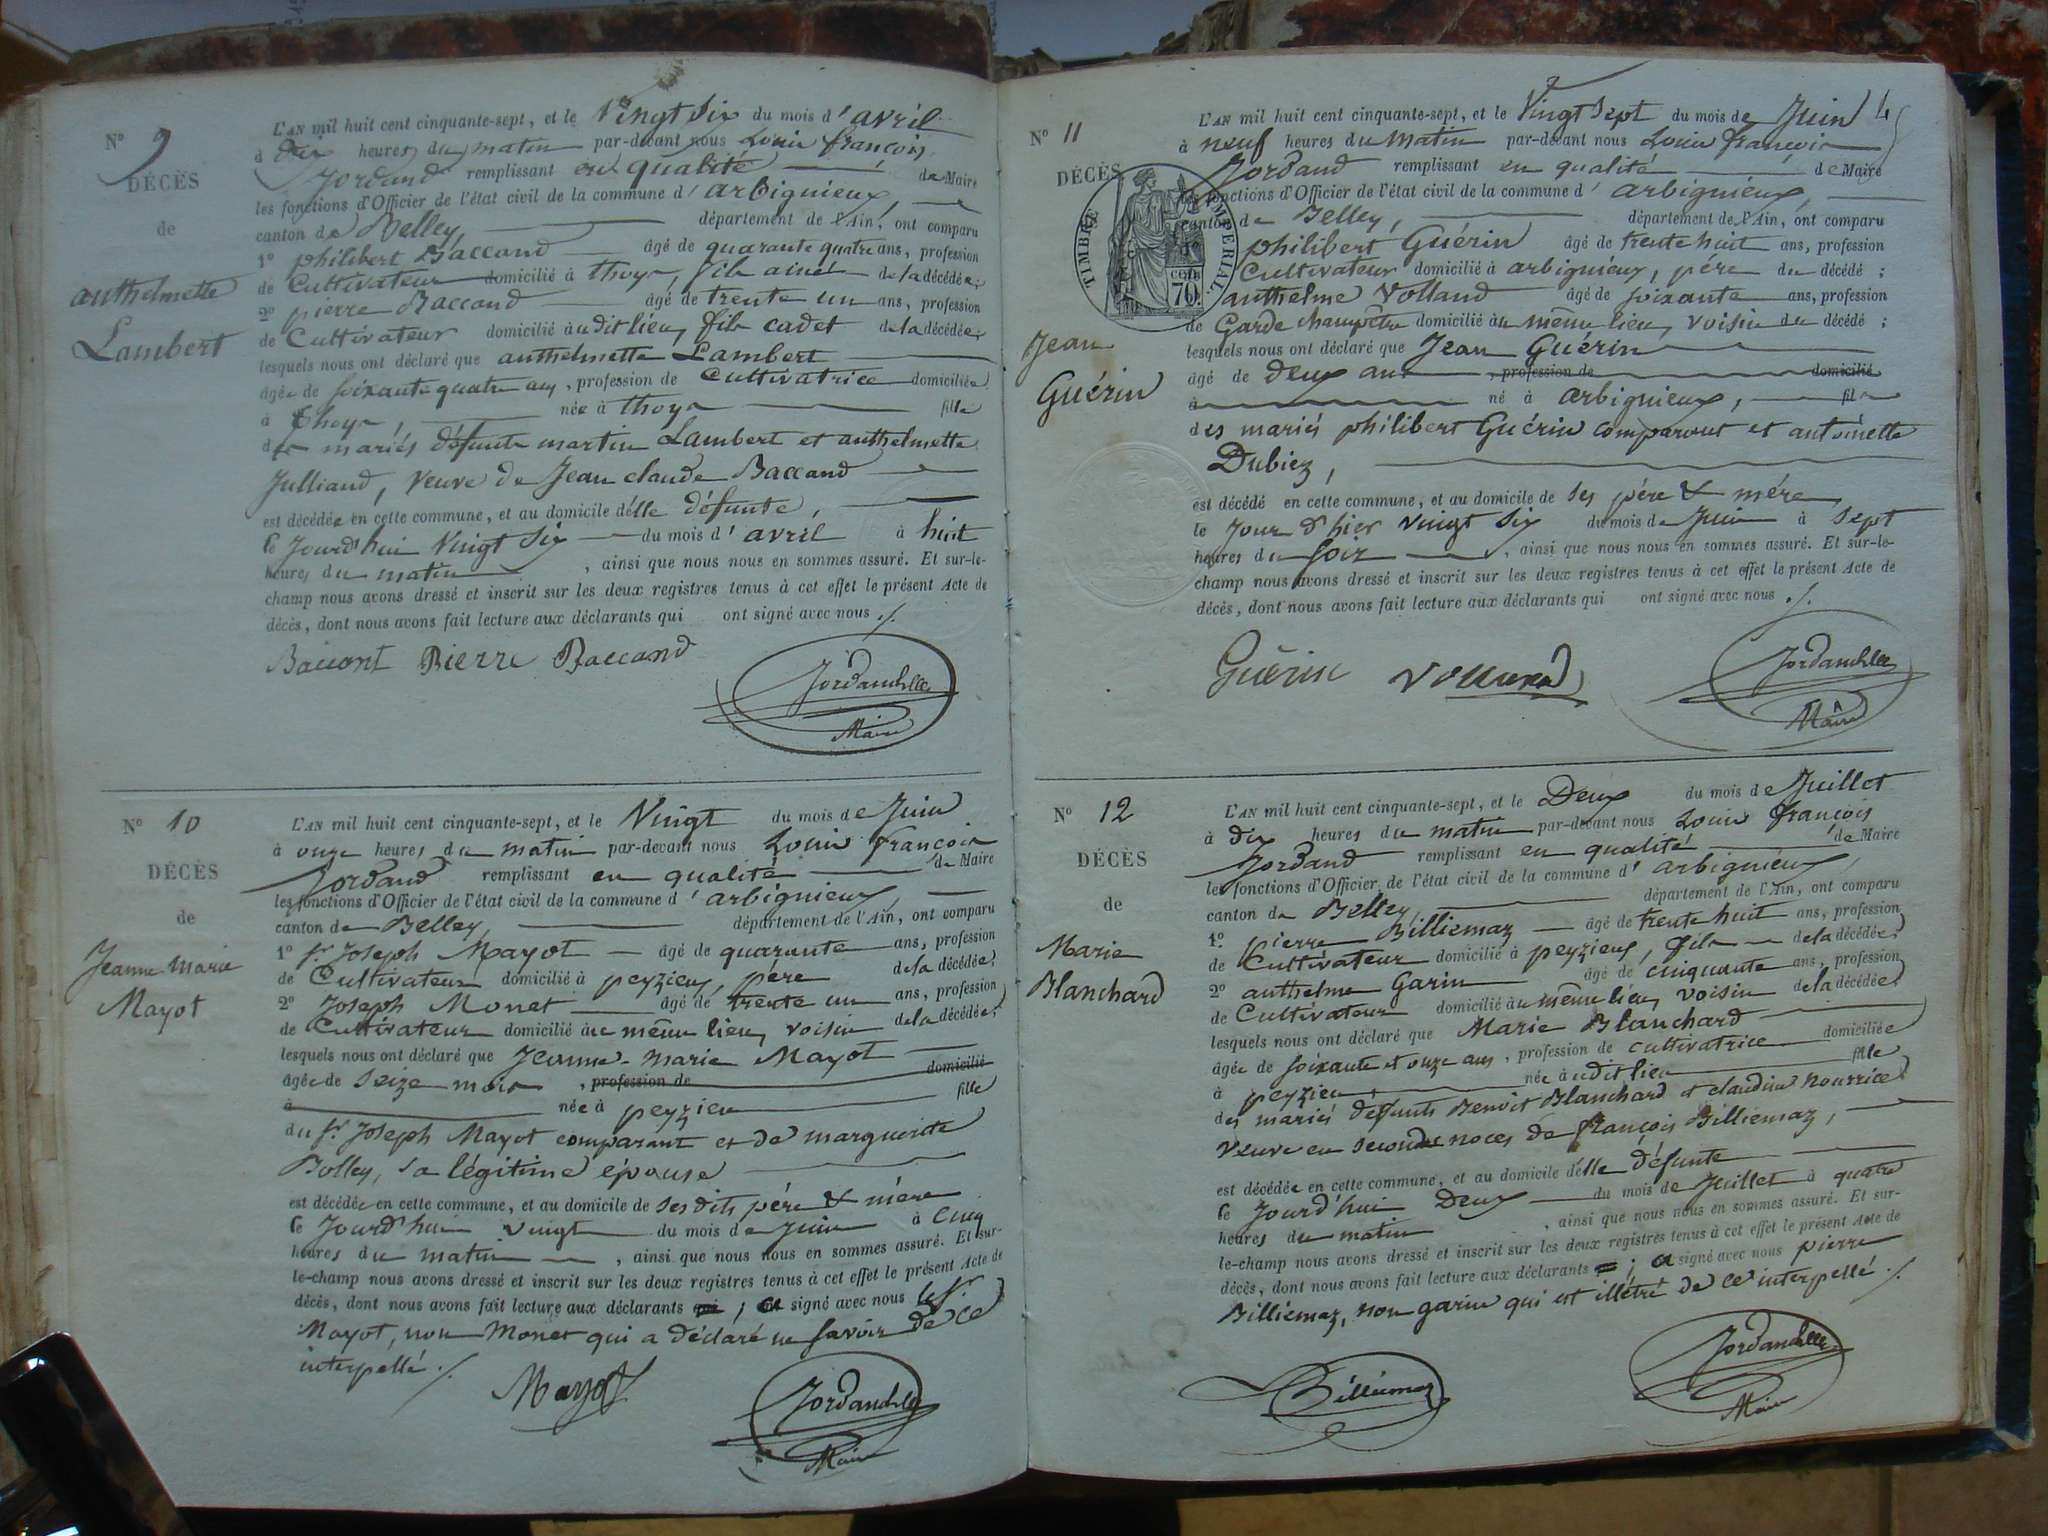 N° 9
DÉCÈS
de
anthelmette
Lambert
L'AN mil huit cent cinquante-sept, et le Vingt Six du mois d'avril
à dix heures du matin par-devant nous Louis françois
Jordand remplissant en qualité de Maire
les fonctions d'Officier de l'état civil de la commune d'arbignieux,
canton de Belley, département de l'Ain, ont comparu
1° philibert Baccand âgé de quarante quatre ans, profession
de Cultivateur domicilié à thoys, fils ainé de la décédée;
2° pierre Baccand âgé de trente un ans, profession
de Cultivateur domicilié audit lieu, fils cadet de la décédée;
lesquels nous ont déclaré que anthelmette Lambert
âgée de soixante quatre ans, profession de Cultivatrice domiciliée
à thoys, née à thoys fille
des mariés défunts martin Lambert et anthelmette
Julliand, veuve de Jean claude Baccand
est décédée en cette commune, et au domicile d'elle défunte,
le Jourd'hui Vingt Six du mois d'avril à huit
heures du matin, ainsi que nous nous en sommes assuré. Et sur-le-
champ nous avons dressé et inscrit sur les deux registres tenus à cet effet le présent Acte de
décès, dont nous avons fait lecture aux déclarants qui ont signé avec nous ./.
Baccont Pierre Baccand
Jordand
Maire
N° 10
DÉCÈS
de
Jeanne marie
Mayot
L'AN mil huit cent cinquante-sept, et le Vingt du mois de Juin
à onze heures du matin par-devant nous Louis françois
Jordand remplissant en qualité de Maire
les fonctions d'Officier de l'état civil de la commune d'arbignieux,
canton de Belley, département de l'Ain, ont comparu
1° Sr. Joseph Mayot âgé de quarante ans, profession
de Cultivateur domicilié à peyzieu, père de la décédée;
2° Joseph Monet âgé de trente un ans, profession
de Cultivateur domicilié au même lieu, voisin de la décédée;
lesquels nous ont déclaré que Jeanne marie Mayot
âgée de seize mois, profession de domicilié
à née à peyzieu fille
du Sr. Joseph Mayot comparant et de marguerite
Bolley, sa légitime épouse
est décédée en cette commune, et au domicile de ses dits père & mère
le Jourd'hui vingt du mois de Juin à cinq
heures du matin, ainsi que nous nous en sommes assuré. Et sur-
le-champ nous avons dressé et inscrit sur les deux registres tenus à cet effet le présent Acte de
décès, dont nous avons fait lecture aux déclarants qui; a signé avec nous le Sr.
Mayot, non Monet qui a déclaré ne savoir de ce
interpellé ./.
Mayot
Jordand
Maire
N° 11
DÉCÈS
TIMBRE IMPÉRIAL
70
Jean
Guérin
L'AN mil huit cent cinquante-sept, et le Vingt Sept du mois de Juin
à neuf heures du Matin par-devant nous Louis françois
Jordand remplissant en qualité de Maire
les fonctions d'Officier de l'état civil de la commune d'arbignieux,
canton de Belley, département de l'Ain, ont comparu
philibert Guérin âgé de trente huit ans, profession
Cultivateur domicilié à arbignieux, père du décédé;
anthelme Volland âgé de soixante ans, profession
de Garde champêtre domicilié au même lieu, voisin du décédé;
lesquels nous ont déclaré que Jean Guérin
âgé de deux ans, profession de domicilié
à né à arbignieux, fils
des mariés philibert Guérin comparant et antoinette
Dubiez,
est décédé en cette commune, et au domicile de ses père & mère,
le Jour d'hier vingt Six du mois de Juin à Sept
heures du soir, ainsi que nous nous en sommes assuré. Et sur-le-
champ nous avons dressé et inscrit sur les deux registres tenus à cet effet le présent Acte de
décès, dont nous avons fait lecture aux déclarants qui ont signé avec nous ./.
Guérin Volland
Jordand
Maire
N° 12
DÉCÈS
de
Marie
Blanchard
L'AN mil huit cent cinquante-sept, et le Deux du mois de Juillet
à dix heures du matin par-devant nous Louis françois
Jordand remplissant en qualité de Maire
les fonctions d'Officier de l'état civil de la commune d'arbignieux,
canton de Belley, département de l'Ain, ont comparu
1° pierre Billiemaz âgé de trente huit ans, profession
de Cultivateur domicilié à peyzieu, fils de la décédée;
2° anthelme Garin âgé de cinquante ans, profession
de Cultivateur domicilié au même lieu, voisin de la décédée;
lesquels nous ont déclaré que Marie Blanchard
âgée de soixante et onze ans, profession de cultivatrice domiciliée
à peyzieu, née audit lieu fille
des mariés défunts Benoît Blanchard et claudine nourrice
veuve en secondes noces de françois Billiemaz,
est décédée en cette commune, et au domicile d'elle défunte
le Jourd'hui Deux du mois de Juillet à quatre
heures du matin, ainsi que nous nous en sommes assuré. Et sur-
le-champ nous avons dressé et inscrit sur les deux registres tenus à cet effet le présent Acte de
décès, dont nous avons fait lecture aux déclarants; a signé avec nous pierre
Billiemaz, non garin qui est illétré de ce interpellé ./.
Billiemaz
Jordand
Maire